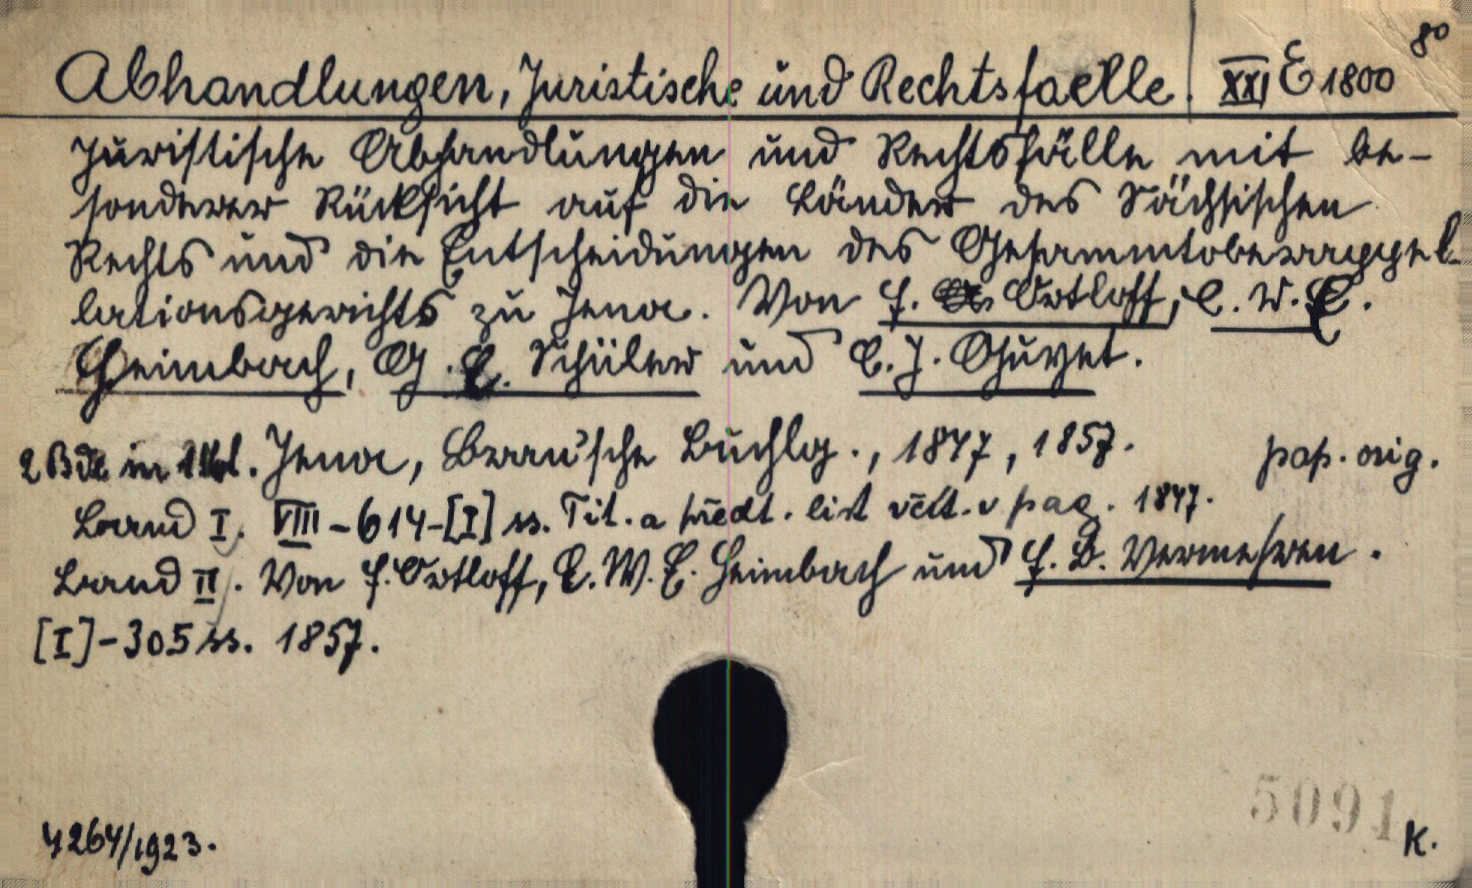 8º
Abhandlungen, Juristische und Rechtsfaelle. XXI E 1800
Juristische Abhandlungen und Rechtsfälle mit be-
sonderer Rücksicht auf die Länder des Sächsischen
Rechts und die Entscheidungen des Gesammtoberappel-
lationsgerichts zu Jena. Von F. Ortloff, C. W. E.
Heimbach, G. E. Schüler und C. J. Guyet.
2 Bde in 1 Vol. Jena, Bran'sche Buchlg., 1847, 1857. pap. orig.
Band I. VIII-614-[I] ss. Tit. a předt. list v pag. 1847.
Band II. Von F. Ortloff, C. W. E. Heimbach und F. B. Vermehren.
[I]-305 ss. 1857.
5091
4264/1923. K.